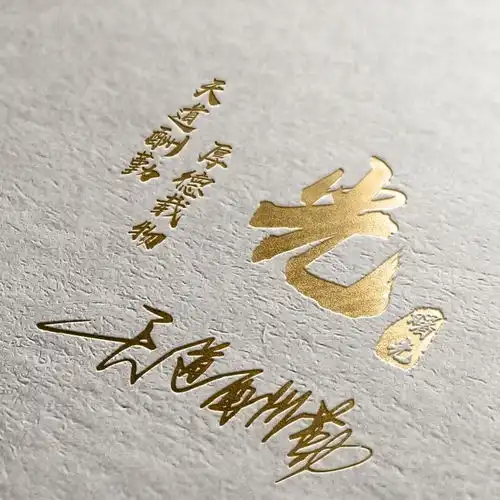 天道酬勤
厚德載物
光
天道酬勤